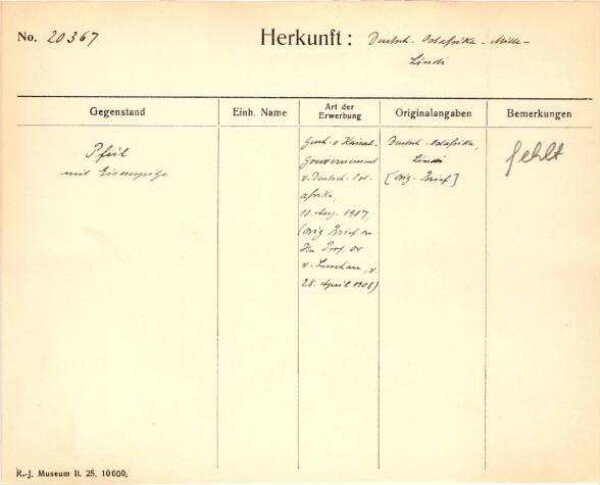 No. 20367
Herkunft: Deutsch-Ostafrika-Mitte-
Lindi
Gegenstand
Einh. Name
Art der
Erwerbung
Originalangaben
Bemerkungen
Pfeil
mit Eisenspitze
Gesch. v. Kaiserl.
Gouvernement
v. Deutsch-Ost-
afrika,
10 Aug. 1907,
(Orig Brief an
Hn Prof. Dr
v. Luschan, v.
28. April 1908)
Deutsch-Ostafrika,
Lindi
[Orig-Brief]
fehlt
R.-J. Museum II. 25. 10000.